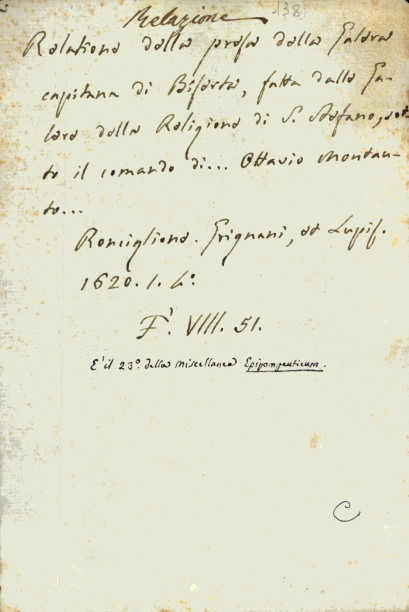 Relazione
138
Relatione della presa della Galera
capitana di Biserta, fatta dalle Ga-
lere della Religione di S. Stefano, sot-
to il comando di... Ottavio Montau-
to...
Ronciglione. Grignani, et Lupis.
1620. 1. 4º.
F. VIII. 51.
E' il 23º. della Miscellanea Epipompeuticum.
C